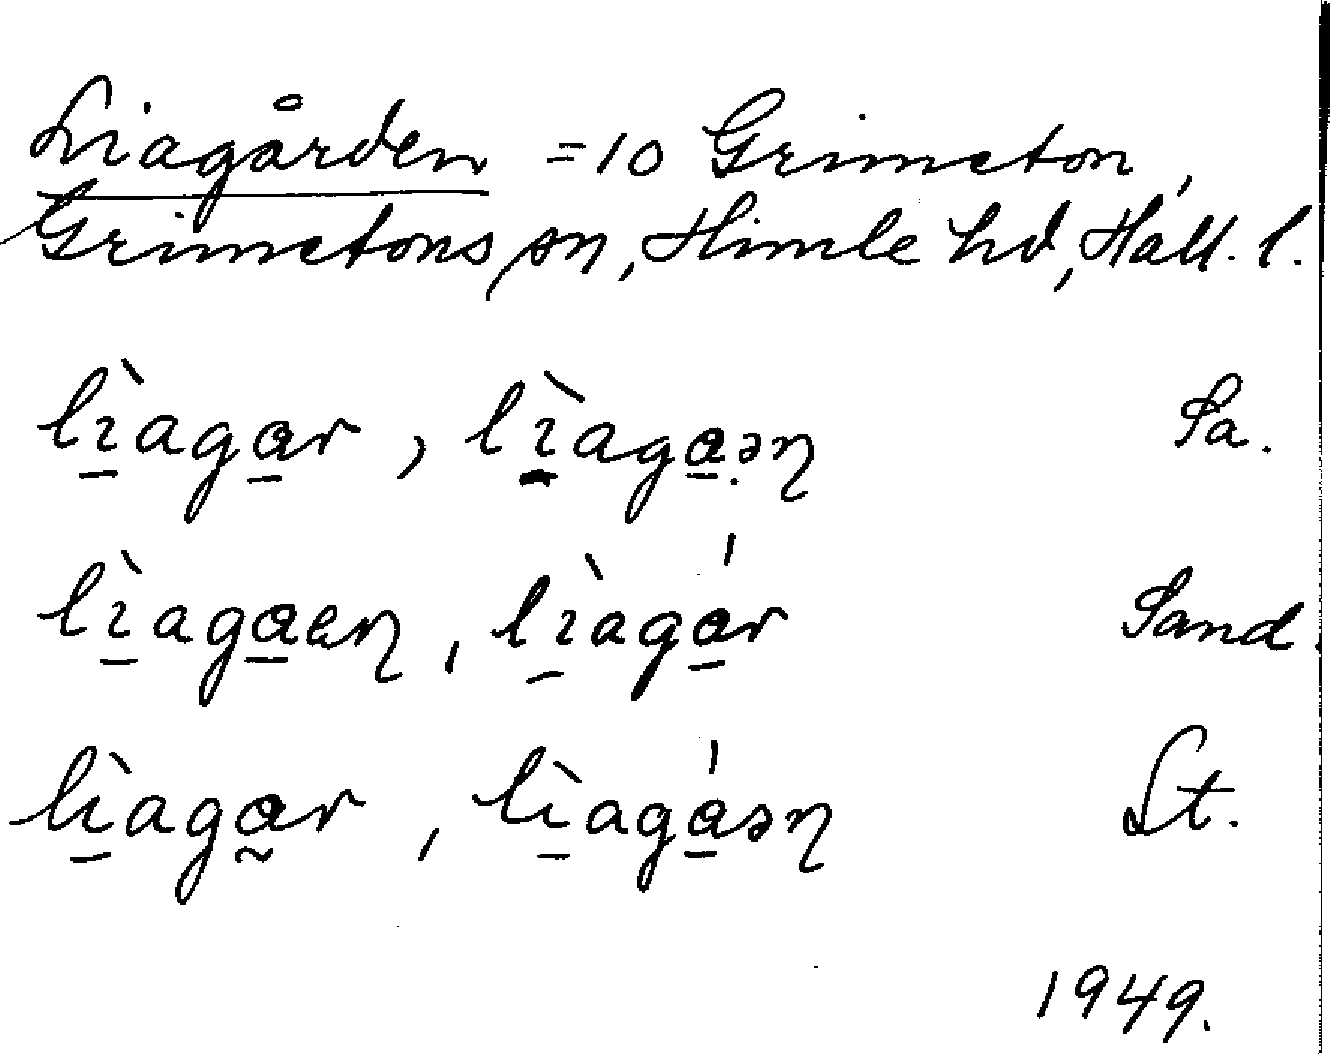 Liagården = 10 Grimeton,
Grimetons sn, Himle hd, Hall. l.
lìagar, lìagaəɳ Sa.
lìagaeɳ, lìagár Sand.
lìagar, lìagáəɳ St.
1949.